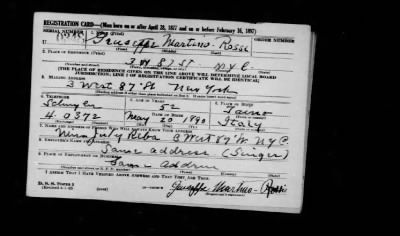 REGISTRATION CARD—(Men born on or after April 28, 1877 and on or before February 16, 1897)
SERIAL NUMBER
1. NAME (Print)
ORDER NUMBER
U
Giuseppe Martino-Rossi
(First) (Middle) (Last)
2. PLACE OF RESIDENCE (Print)
3 W 87 ST. N.Y.C.
(Number and street) (Town, township, village, or city) (County) (State)
[THE PLACE OF RESIDENCE GIVEN ON THE LINE ABOVE WILL DETERMINE LOCAL BOARD
JURISDICTION; LINE 2 OF REGISTRATION CERTIFICATE WILL BE IDENTICAL]
3. MAILING ADDRESS
3 West 87th St New York
4. TELEPHONE
5. AGE IN YEARS
6. PLACE OF BIRTH
Schuyler
52
Taino
DATE OF BIRTH
4.0372
May 20 1890
Italy
7. NAME AND ADDRESS OF PERSON WHO WILL ALWAYS KNOW YOUR ADDRESS
3 West 87 W. N.Y.C.
8. EMPLOYER'S NAME AND ADDRESS
Same address (Singer)
9. PLACE OF EMPLOYMENT OR BUSINESS
Same Address
I AFFIRM THAT I HAVE VERIFIED ABOVE ANSWERS AND THAT THEY ARE TRUE.
D. S. S. Form 1
Giuseppe Martino-Rossi